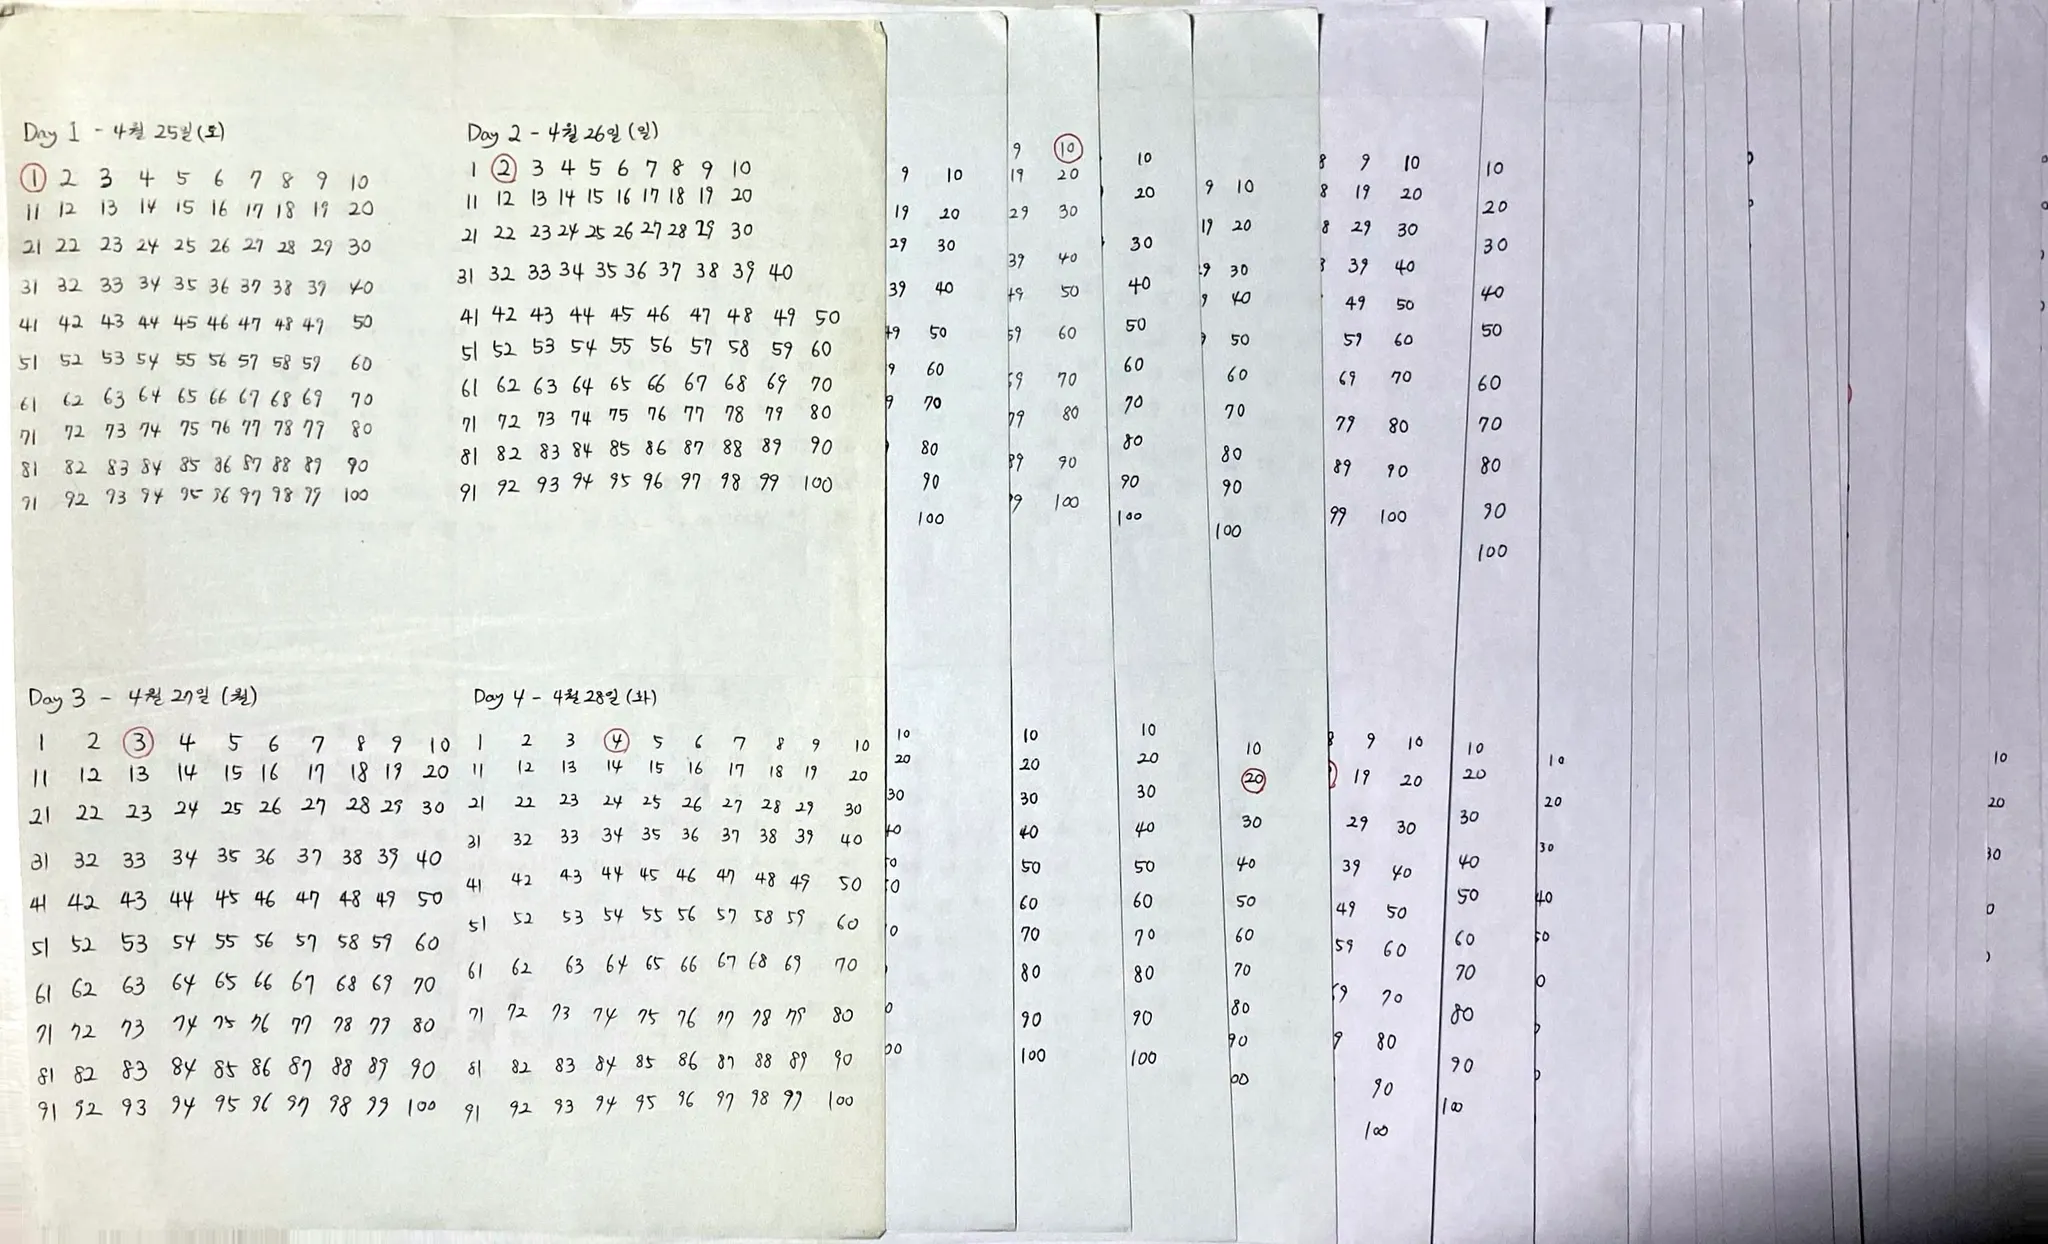 Day 1 - 4월 25일(토)
1 2 3 4 5 6 7 8 9 10
11 12 13 14 15 16 17 18 19 20
21 22 23 24 25 26 27 28 29 30
31 32 33 34 35 36 37 38 39 40
41 42 43 44 45 46 47 48 49 50
51 52 53 54 55 56 57 58 59 60
61 62 63 64 65 66 67 68 69 70
71 72 73 74 75 76 77 78 79 80
81 82 83 84 85 86 87 88 89 90
91 92 93 94 95 96 97 98 99 100
Day 2 - 4월 26일(일)
1 2 3 4 5 6 7 8 9 10
11 12 13 14 15 16 17 18 19 20
21 22 23 24 25 26 27 28 29 30
31 32 33 34 35 36 37 38 39 40
41 42 43 44 45 46 47 48 49 50
51 52 53 54 55 56 57 58 59 60
61 62 63 64 65 66 67 68 69 70
71 72 73 74 75 76 77 78 79 80
81 82 83 84 85 86 87 88 89 90
91 92 93 94 95 96 97 98 99 100
Day 3 - 4월 27일 (월)
1 2 3 4 5 6 7 8 9 10
11 12 13 14 15 16 17 18 19 20
21 22 23 24 25 26 27 28 29 30
31 32 33 34 35 36 37 38 39 40
41 42 43 44 45 46 47 48 49 50
51 52 53 54 55 56 57 58 59 60
61 62 63 64 65 66 67 68 69 70
71 72 73 74 75 76 77 78 79 80
81 82 83 84 85 86 87 88 89 90
91 92 93 94 95 96 97 98 99 100
Day 4 - 4월 28일 (화)
1 2 3 4 5 6 7 8 9 10
11 12 13 14 15 16 17 18 19 20
21 22 23 24 25 26 27 28 29 30
31 32 33 34 35 36 37 38 39 40
41 42 43 44 45 46 47 48 49 50
51 52 53 54 55 56 57 58 59 60
61 62 63 64 65 66 67 68 69 70
71 72 73 74 75 76 77 78 79 80
81 82 83 84 85 86 87 88 89 90
91 92 93 94 95 96 97 98 99 100
9 10
19 20
29 30
39 40
49 50
60
70
80
90
100
10
20
30
9 10
19 20
29 30
39 40
49 50
59 60
69 70
79 80
89 90
99 100
10
20
30
40
50
60
70
80
90
100
10
20
30
40
50
60
70
80
90
100
10
20
30
40
50
60
70
80
90
100
9 10
19 20
30
40
50
60
70
80
90
100
10
20
30
40
50
60
70
80
90
8 9 10
19 20
29 30
39 40
49 50
59 60
69 70
79 80
89 90
99 100
9 10
19 20
29 30
39 40
49 50
59 60
70
80
90
100
10
20
30
40
50
60
70
80
90
100
10
20
30
40
50
60
70
80
90
100
10
20
30
40
10
20
30